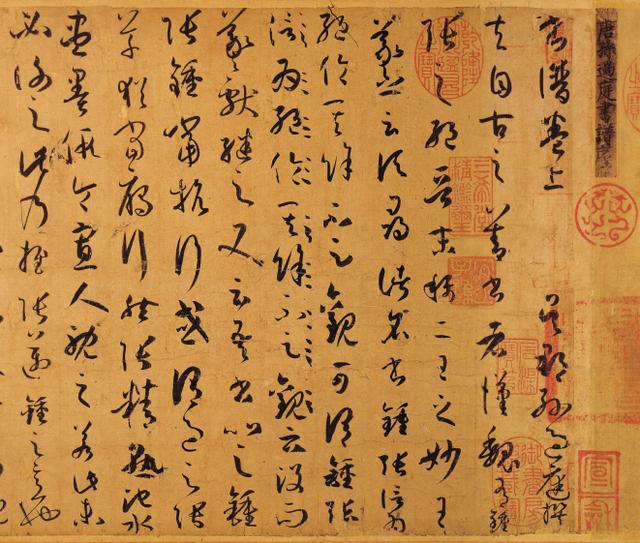 唐孫過庭書譜序
書譜卷上 吳郡孫過庭撰
夫自古之善書者漢魏有鍾
張之絕晉末稱二王之妙王
羲之云頃尋諸名書鍾張信為
絕倫其餘不足觀可謂鍾張
信為絕倫其餘不足觀云沒而
羲獻繼之又云吾書比之鍾
張鍾當抗行或謂過之張
草猶當雁行然張精熟池水
盡墨假令寡人耽之若此未
必謝之此乃推張邁鍾之意也
乾隆御覽之寶
三希堂精鑑璽
宜子孫
宣和